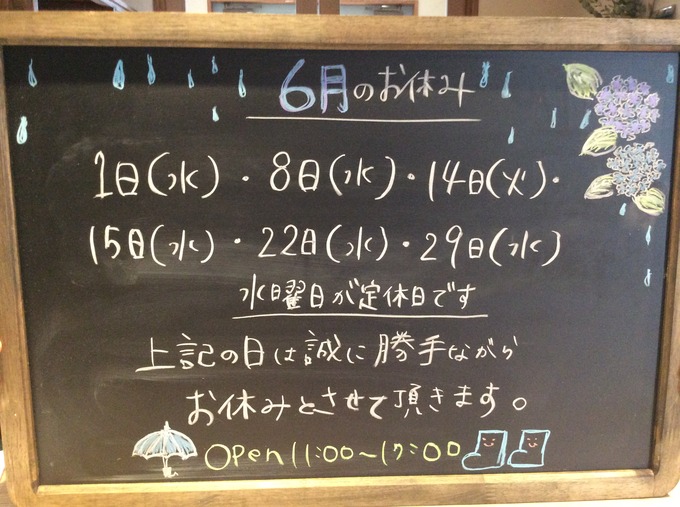 6月のお休み
1日(水)・8日(水)・14日(火)・
15日(水)・22日(水)・29日(水)
水曜日が定休日です
上記の日は誠に勝手ながら
お休みとさせて頂きます。
Open 11:00~17:00